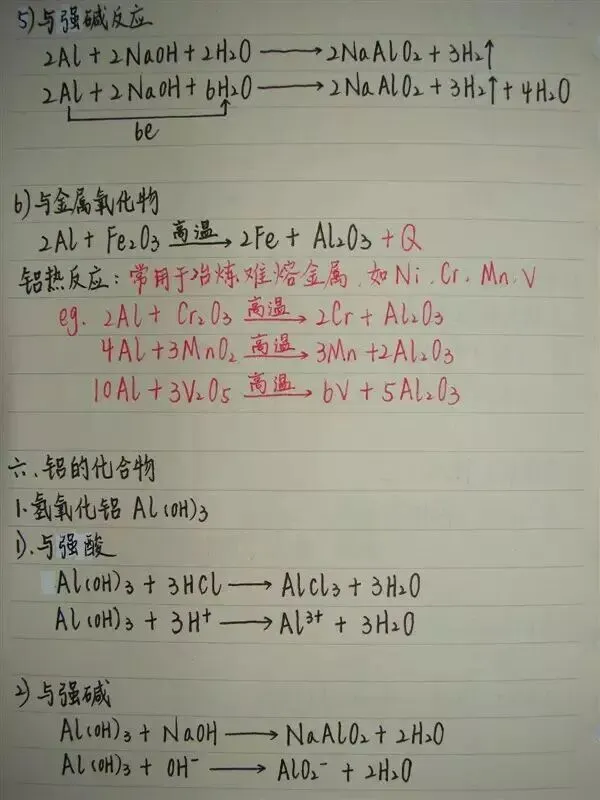 5)与强碱反应
2Al + 2NaOH + 2H₂O ⟶ 2NaAlO₂ + 3H₂↑
2Al + 2NaOH + 6H₂O ⟶ 2NaAlO₂ + 3H₂↑ + 4H₂O
6e
6)与金属氧化物
2Al + Fe₂O₃ 高温⟶ 2Fe + Al₂O₃ + Q
铝热反应:常用于冶炼难熔金属,如Ni、Cr、Mn、V
eg. 2Al + Cr₂O₃ 高温⟶ 2Cr + Al₂O₃
4Al + 3MnO₂ 高温⟶ 3Mn + 2Al₂O₃
10Al + 3V₂O₅ 高温⟶ 6V + 5Al₂O₃
六、铝的化合物
1.氢氧化铝 Al(OH)₃
1).与强酸
Al(OH)₃ + 3HCl ⟶ AlCl₃ + 3H₂O
Al(OH)₃ + 3H⁺ ⟶ Al³⁺ + 3H₂O
2)与强碱
Al(OH)₃ + NaOH ⟶ NaAlO₂ + 2H₂O
Al(OH)₃ + OH⁻ ⟶ AlO₂⁻ + 2H₂O